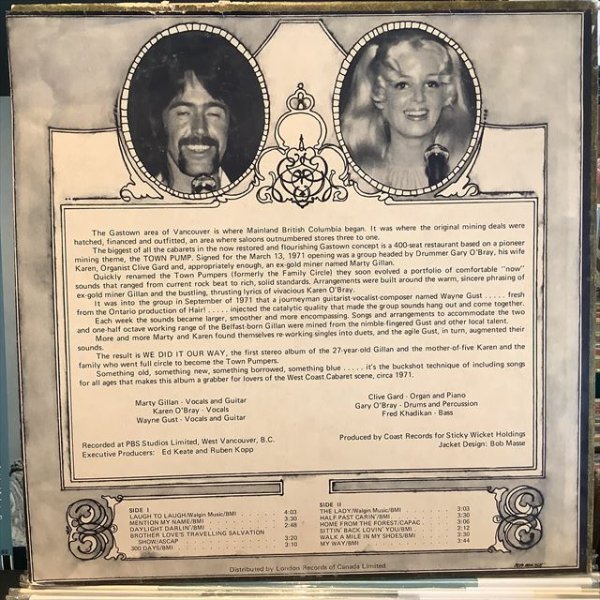 The Gastown area of Vancouver is where Mainland British Columbia began. It was where the original mining deals were
hatched, financed and outfitted, an area where saloons outnumbered stores three to one.
The biggest of all the cabarets in the now restored and flourishing Gastown concept is a 400-seat restaurant based on a pioneer
mining theme, the TOWN PUMP. Signed for the March 13, 1971 opening was a group headed by Drummer Gary O'Bray, his wife
Karen, Organist Clive Gard and, appropriately enough, an ex-gold miner named Marty Gillan.
Quickly renamed the Town Pumpers (formerly the Family Circle) they soon evolved a portfolio of comfortable "now"
sounds that ranged from current rock beat to rich, solid standards. Arrangements were built around the warm, sincere phrasing of
ex-gold miner Gillan and the bustling, thrusting lyrics of vivacious Karen O'Bray.
It was into the group in September of 1971 that a journeyman guitarist-vocalist-composer named Wayne Gust ..... fresh
from the Ontario production of Hair! ..... injected the catalytic quality that made the group sounds hang out and come together.
Each week the sounds became larger, smoother and more encompassing. Songs and arrangements to accommodate the two
and one-half octave working range of the Belfast-born Gillan were mined from the nimble-fingered Gust and other local talent.
More and more Marty and Karen found themselves re-working singles into duets, and the agile Gust, in turn, augmented their
sounds.
The result is WE DID IT OUR WAY, the first stereo album of the 27-year-old Gillan and the mother-of-five Karen and the
family who went full circle to become the Town Pumpers.
Something old, something new, something borrowed, something blue ..... it's the buckshot technique of including songs
for all ages that makes this album a grabber for lovers of the West Coast Cabaret scene, circa 1971.
Marty Gillan - Vocals and Guitar
Karen O'Bray - Vocals
Wayne Gust - Vocals and Guitar
Clive Gard - Organ and Piano
Gary O'Bray - Drums and Percussion
Fred Khadikan - Bass
Recorded at PBS Studios Limited, West Vancouver, B.C.
Executive Producers: Ed Keate and Ruben Kopp
Produced by Coast Records for Sticky Wicket Holdings
Jacket Design: Bob Masse
SIDE I
LAUGH TO LAUGH/Walgin Music/BMI 4:03
MENTION MY NAME/BMI 3:30
DAYLIGHT DARLIN'/BMI 2:48
BROTHER LOVE'S TRAVELLING SALVATION
SHOW/ASCAP 3:20
300 DAYS/BMI 3:10
SIDE II
THE LADY/Walgin Music/BMI 3:30
HALF PAST CARIN'/BMI 3:30
HOME FROM THE FOREST/CAPAC 3:06
SITTIN' BACK LOVIN' YOU/BMI 2:12
WALK A MILE IN MY SHOES/BMI 3:30
MY WAY/BMI 3:44
Distributed by London Records of Canada Limited